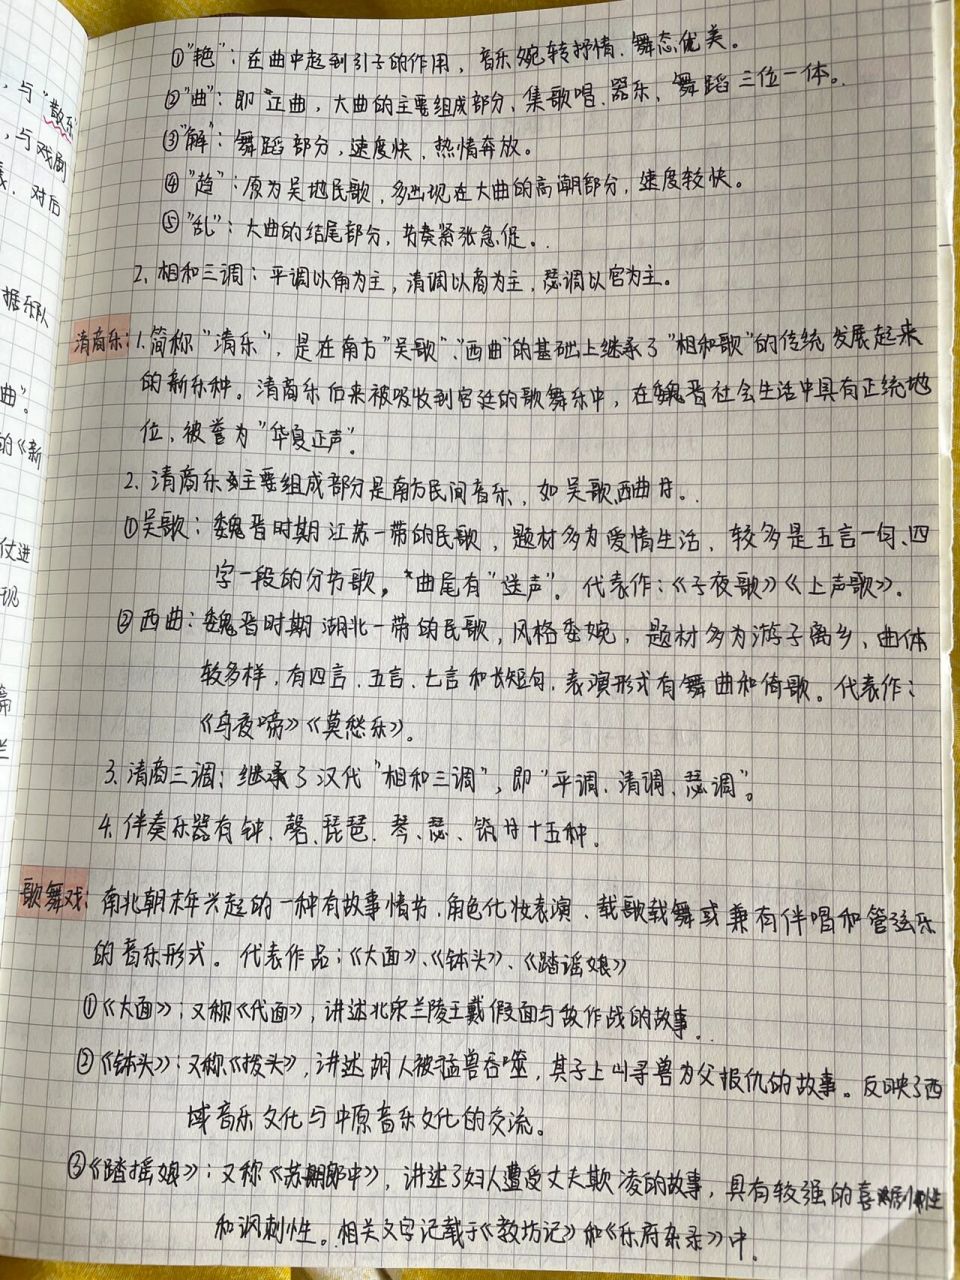 ，与"散乐"
，与戏剧
对后
据乐队
曲"。
的《新
仗进
现
①"艳"：在曲中起到引子的作用，音乐婉转抒情、舞态优美。
②"曲"：即正曲，大曲的主要组成部分，集歌唱、器乐、舞蹈三位一体。
③"解"：舞蹈部分，速度快，热情奔放。
④"趋"：原为吴地民歌，多出现在大曲的高潮部分，速度较快。
⑤"乱"：大曲的结尾部分，节奏紧张急促。
2. 相和三调：平调以角为主，清调以商为主，瑟调以宫为主。
清商乐：1.简称"清乐"，是在南方"吴歌"、"西曲"的基础上继承了"相和歌"的传统发展起来
的新乐种。清商乐后来被吸收到宫廷的歌舞乐中，在魏晋社会生活中具有正统地
位，被誉为"华夏正声"。
2. 清商乐主要组成部分是南方民间音乐，如吴歌、西曲等。
①吴歌：魏晋时期江苏一带的民歌，题材多为爱情生活，较多是五言一句、四
字一段的分节歌，*曲尾有"送声"。代表作：《子夜歌》《上声歌》。
②西曲：魏晋时期湖北一带的民歌，风格委婉，题材多为游子离乡、曲体
较多样，有四言、五言、七言和长短句，表演形式有舞曲和倚歌。代表作：
《乌夜啼》《莫愁乐》。
3. 清商三调：继承了汉代"相和三调"，即"平调、清调、瑟调"。
4. 伴奏乐器有钟、磬、琵琶、琴、瑟、筑等十五种。
歌舞戏：南北朝末年兴起的一种有故事情节、角色化妆表演、载歌载舞或兼有伴唱和管弦乐
的音乐形式。代表作品：《大面》、《钵头》、《踏谣娘》
①《大面》：又称《代面》，讲述北宋兰陵王戴假面与敌作战的故事。
②《钵头》：又称《拨头》，讲述胡人被猛兽吞噬，其子上山寻兽为父报仇的故事。反映了西
域音乐文化与中原音乐文化的交流。
③《踏摇娘》：又称《苏郎中》，讲述了妇人遭受丈夫欺凌的故事，具有较强的喜剧性
和讽刺性。相关文字记载于《教坊记》和《乐府杂录》中。